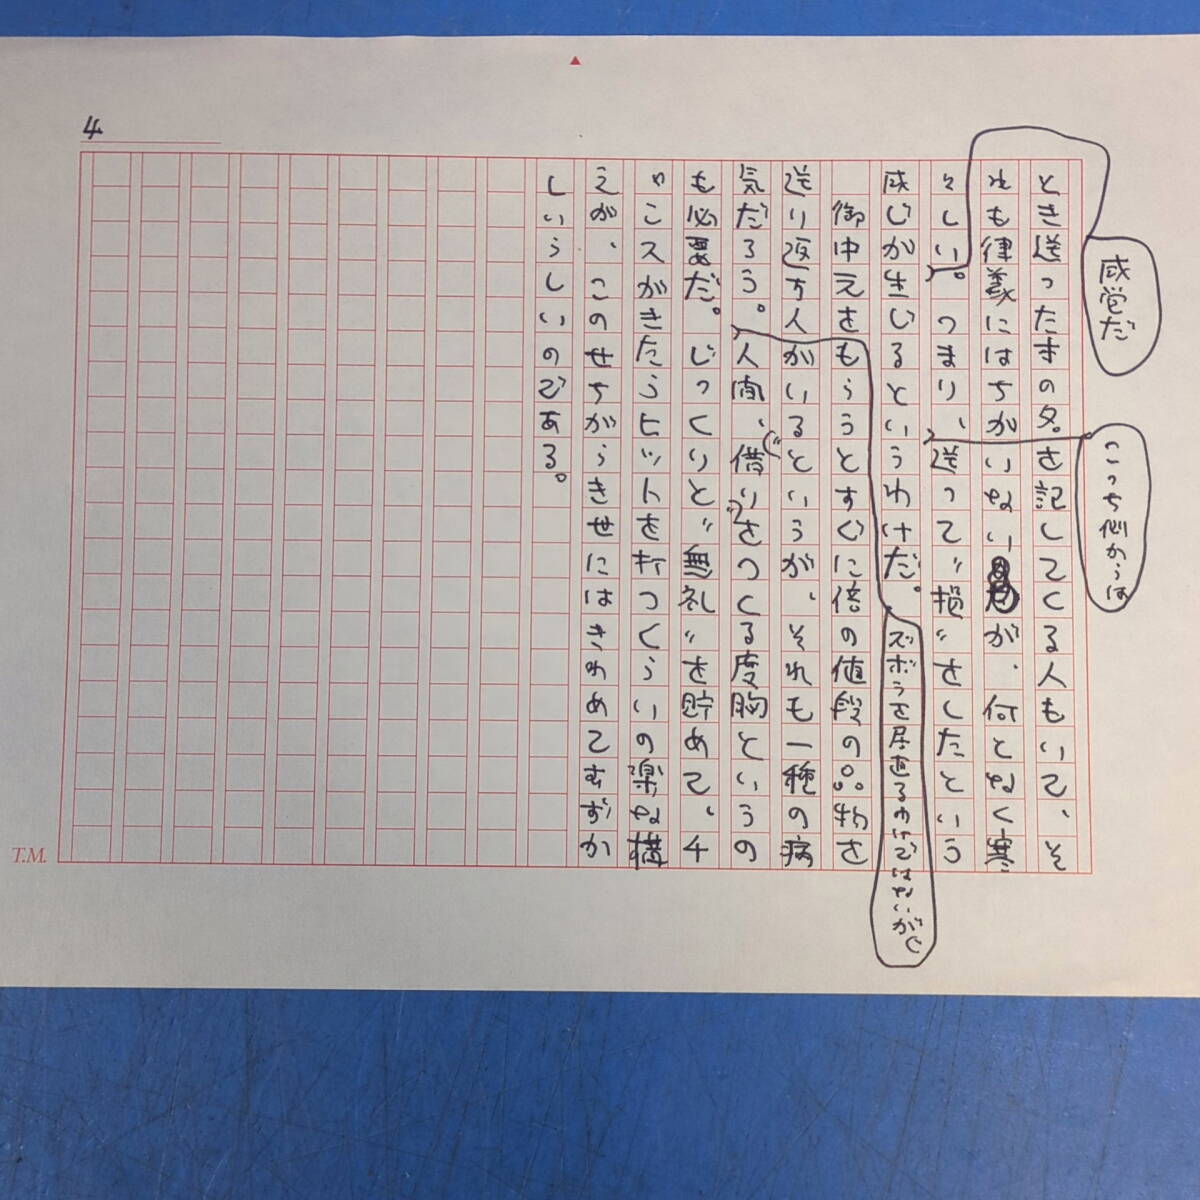 4
感覚だ
こっち側からは
とき送った本の名を記してくる人もいて、そ
れも律義にはちがいないが、何となく寒
々しい。つまり、送って〝損〟をしたという
感じが生じるというわけだ。
ズボラを居直るわけではないが
御中元をもらうとすぐに倍の値段の品物を
送り返す人がいるというが、それも一種の病
気だろう。人間、借りをつくる度胸というの
も必要だ。じっくりと〝無礼〟を貯めて、チ
ャンスがきたらヒットを打つくらいの楽な構
えが、このせちがらき世にはきわめてむずか
しいらしいのである。
T.M.